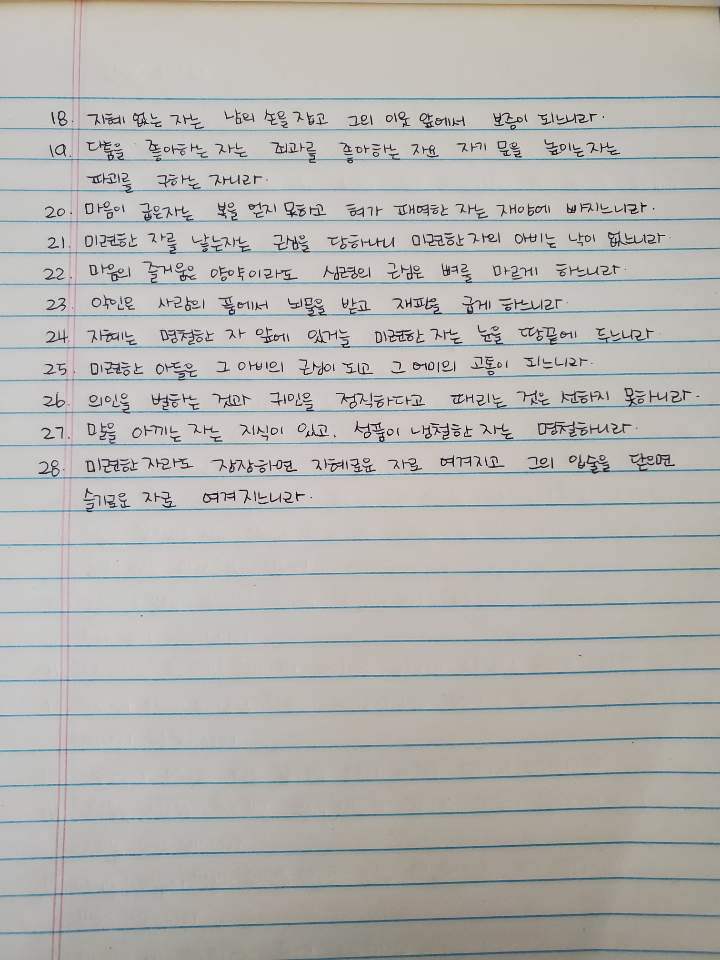 18. 지혜 없는 자는 남의 손을 잡고 그의 이웃 앞에서 보증이 되느니라.
19. 다툼을 좋아하는 자는 죄과를 좋아하는 자요 자기 문을 높이는 자는
파괴를 구하는 자니라.
20. 마음이 굽은자는 복을 얻지 못하고 혀가 패역한 자는 재앙에 빠지느니라.
21. 미련한 자를 낳는자는 근심을 당하나니 미련한 자의 아비는 낙이 없느니라
22. 마음의 즐거움은 양약이라도 심령의 근심은 뼈를 마르게 하느니라.
23. 악인은 사람의 품에서 뇌물을 받고 재판을 굽게 하느니라.
24. 지혜는 명철한 자 앞에 있거늘 미련한 자는 눈을 땅끝에 두느니라
25. 미련한 아들은 그 아비의 근심이 되고 그 어미의 고통이 되느니라.
26. 의인을 벌하는 것과 귀인을 정직하다고 때리는 것은 선하지 못하니라.
27. 말을 아끼는 자는 지식이 있고. 성품이 냉철한 자는 명철하니라.
28. 미련한 자라도 잠잠하면 지혜로운 자로 여겨지고 그의 입술을 닫으면
슬기로운 자로 여겨지느니라.